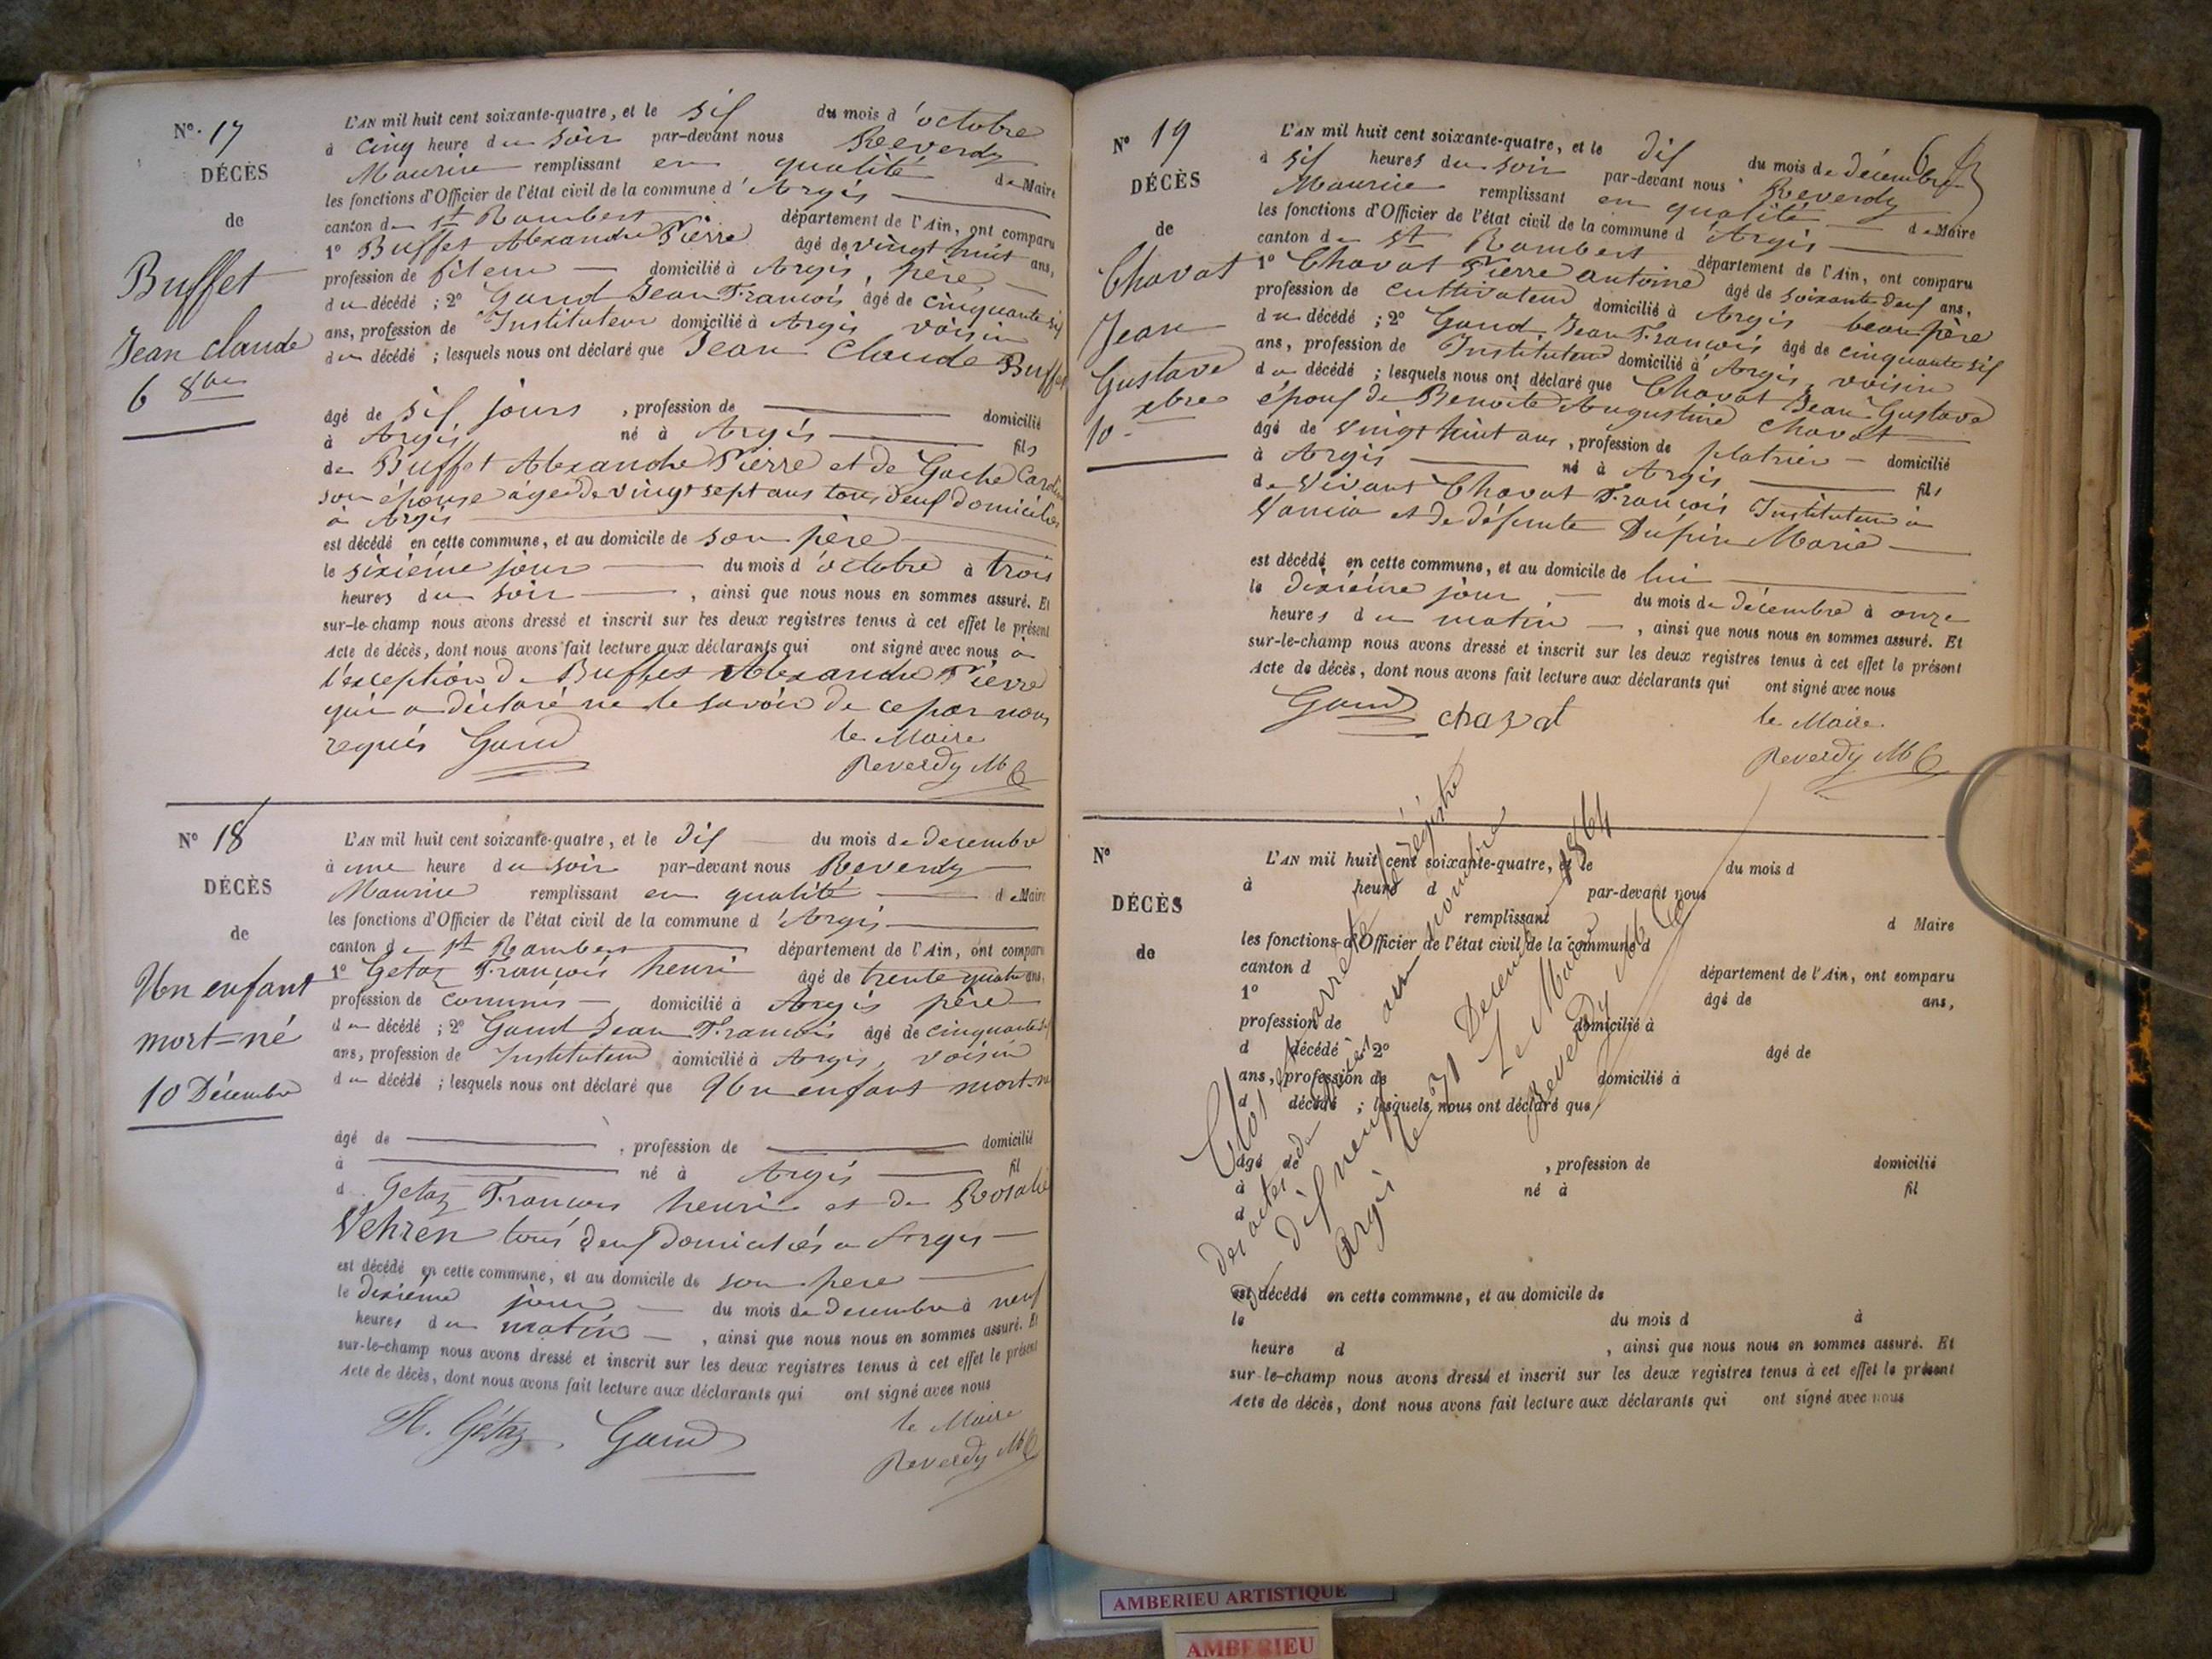 N° 17
DÉCÈS
de
Buffet
Jean claude
6 8bre
L'AN mil huit cent soixante-quatre, et le six du mois d'octobre
à cinq heure du soir par-devant nous Reverdy
Maurice remplissant en qualité de Maire
les fonctions d'Officier de l'état civil de la commune d'Argis
canton de St Rambert département de l'Ain, ont comparu
1° Buffet Alexandre Pierre âgé de vingt huit ans,
profession de fileur domicilié à Argis, père
du décédé ; 2° Gaud Jean François âgé de cinquante six
ans, profession de Instituteur domicilié à Argis voisin
du décédé ; lesquels nous ont déclaré que Jean Claude Buffet
âgé de six jours , profession de domicilié
à Argis né à Argis fils
de Buffet Alexandre Pierre et de Gache Caroline
son épouse âgée de vingt sept ans tous deux domiciliés
à Argis
est décédé en cette commune, et au domicile de son père
le sixième jour du mois d'octobre à trois
heures du soir , ainsi que nous nous en sommes assuré. Et
sur-le-champ nous avons dressé et inscrit sur les deux registres tenus à cet effet le présent
Acte de décès, dont nous avons fait lecture aux déclarants qui ont signé avec nous a
l'exception de Buffet Alexandre Pierre
qui a déclaré ne le savoir de ce par nous
requis Gaud le Maire
Reverdy M
N° 18
DÉCÈS
de
Un enfant
mort-né
10 Décembre
L'AN mil huit cent soixante-quatre, et le dix du mois de decembre
à une heure du soir par-devant nous Reverdy
Maurice remplissant en qualité de Maire
les fonctions d'Officier de l'état civil de la commune d'Argis
canton de St Rambert département de l'Ain, ont comparu
1° Getaz François henri âgé de trente quatre ans,
profession de commis domicilié à Argis père
du décédé ; 2° Gaud Jean François âgé de cinquante six
ans, profession de Instituteur domicilié à Argis, voisin
du décédé ; lesquels nous ont déclaré que Un enfant mort-né
âgé de , profession de domicilié
à né à Argis fil
d Getaz François henri et de Rosalie
Vehren tous deux domiciliés a Argis
est décédé en cette commune, et au domicile de son pere
le dixième jour du mois de decembre à neuf
heures du matin , ainsi que nous nous en sommes assuré. Et
sur-le-champ nous avons dressé et inscrit sur les deux registres tenus à cet effet le présent
Acte de décès, dont nous avons fait lecture aux déclarants qui ont signé avec nous
H. Gétaz Gaud le Maire
Reverdy M
N° 19
DÉCÈS
de
Chavat
Jean
Gustave
10 xbre
L'AN mil huit cent soixante-quatre, et le dix du mois de décembre
à six heures du soir par-devant nous Reverdy
Maurice remplissant en qualité de Maire
les fonctions d'Officier de l'état civil de la commune d'Argis
canton de St Rambert département de l'Ain, ont comparu
1° Chavat Pierre antoine âgé de soixante deux ans,
profession de cultivateur domicilié à Argis beau père
du décédé ; 2° Gaud Jean François âgé de cinquante six
ans, profession de Instituteur domicilié à Argis, voisin
du décédé ; lesquels nous ont déclaré que Chavat Jean Gustave
époux de Benoite Augustine Chavat
âgé de vingt huit ans , profession de platrier domicilié
à Argis né à Argis fils
de vivant Chavat François Instituteur à
et de défunte Dupin Marie
est décédé en cette commune, et au domicile de lui
le dixième jour du mois de décembre à onze
heures du matin , ainsi que nous nous en sommes assuré. Et
sur-le-champ nous avons dressé et inscrit sur les deux registres tenus à cet effet le présent
Acte de décès, dont nous avons fait lecture aux déclarants qui ont signé avec nous
Gaud chavat le Maire
Reverdy M
N°
DÉCÈS
de
L'AN mil huit cent soixante-quatre, et le du mois d
à heure d par-devant nous
remplissant d Maire
les fonctions d'Officier de l'état civil de la commune d
canton d département de l'Ain, ont comparu
1° âgé de ans,
profession de domicilié à
d décédé 2° âgé de
ans, profession de domicilié à
d décédé ; lesquels nous ont déclaré que
âgé de , profession de domicilié
à né à fil
d
est décédé en cette commune, et au domicile de
le du mois d à
heure d , ainsi que nous nous en sommes assuré. Et
sur-le-champ nous avons dressé et inscrit sur les deux registres tenus à cet effet le présent
Acte de décès, dont nous avons fait lecture aux déclarants qui ont signé avec nous
Clos et arrêté le registre
des actes de décès au nombre
de dix neuf
Argis le 31 Decembre 1864
Le Maire
Reverdy M
AMBERIEU ARTISTIQUE
AMBERIEU